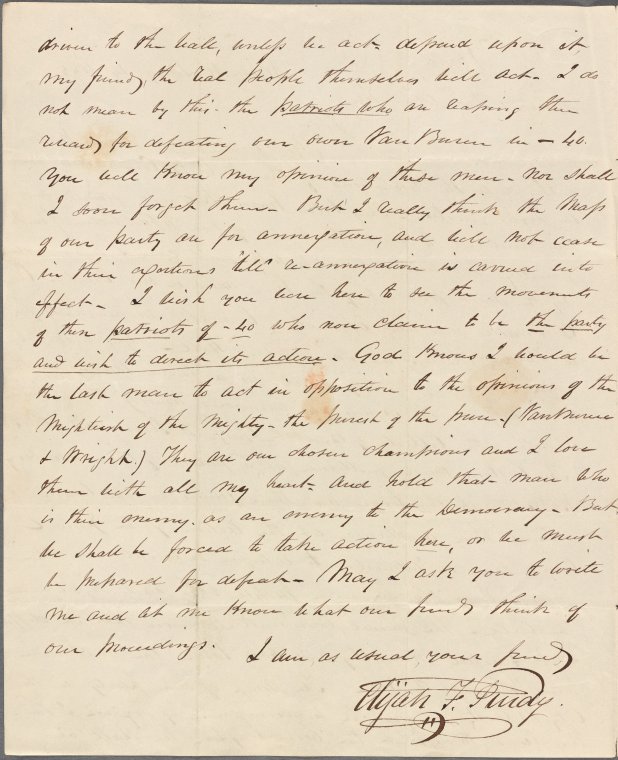 driven to the wall, unless we act - depend upon it
my friend, the real people themselves will act - I do
not mean by this - the patriots who are reaping their
reward for defeating our own Van Buren in - 40.
You well know my opinion of these men - nor shall
I soon forget them - But I really think the Mass
of our party are for annexation, and will not cease
in their exertions till re-annexation is carried into
effect - I wish you were here to see the movements
of these patriots of - 40 who now claim to be the party
and wish to direct its action - God knows I would be
the last man to act in opposition to the opinions of the
Mightiest of the Mighty - the purest of the pure - (Van Buren
& Wright.) They are our chosen champions and I love
them with all my heart - and hold that man who
is their enemy - as an enemy to the Democracy - But
we shall be forced to take action here, or we must
be prepared for defeat - May I ask you to write
me and let me know what our friends think of
our proceedings.
I am, as usual, your friend,
Elijah F. Purdy.